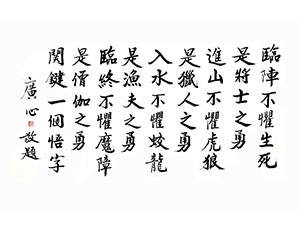 臨陣不懼生死
是將士之勇
進山不懼虎狼
是獵人之勇
入水不懼蛟龍
是漁夫之勇
臨終不懼魔障
是僧伽之勇
関鍵一個悟字
廣心敬題